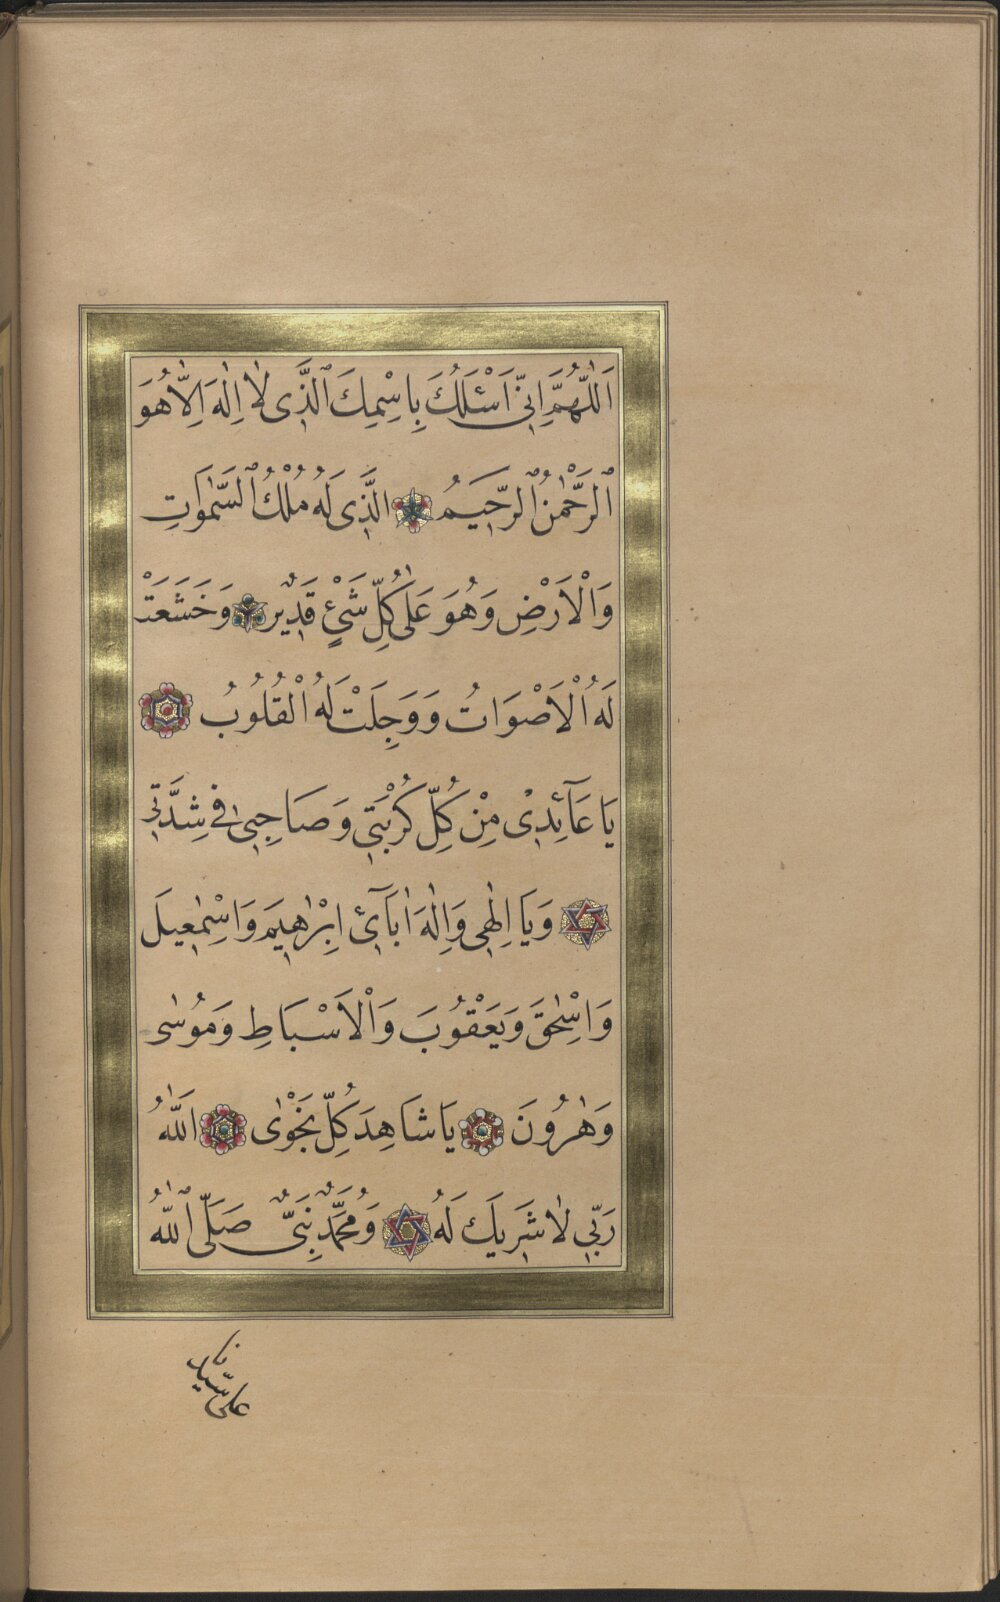 اَللّٰهُمَّ اِنّٖي اَسْئَلُكَ بِاسْمِكَ ٱلَّذٖى لٰا اِلٰهَ اِلّٰا هُوَ
ٱلرَّحْمٰنُ ٱلرَّحٖيمُ الَّذٖى لَهُ مُلْكُ ٱلسَّمٰوَاتِ
وَالْاَرْضِ وَهُوَ عَلٰى كُلِّ شَيْئٍ قَدٖيرٌ وَخَشَعَتْ
لَهُ الْاَصْوَاتُ وَوَجِلَتْ لَهُ الْقُلُوبُ
يَا عَآئِدٖىْ مِنْ كُلِّ كُرْبَتٖي وَصَاحِبٖى فٖي شِدَّتٖي
وَيَا اِلٰهٖى وَاِلٰهَ اٰبَآئٖ اِبْرٰهٖيمَ وَاِسْمٰعٖيلَ
وَاِسْحٰقَ وَيَعْقُوبَ وَالْاَسْبَاطِ وَمُوسٰى
وَهٰرُونَ يَا شَاهِدَ كُلِّ نَجْوٰى اَللّٰهُ
رَبّٖي لٰا شَرٖيكَ لَهُ وَمُحَمَّدٌ نَبِىٌّ صَلَّى ٱللّٰهُ
على سيدنا